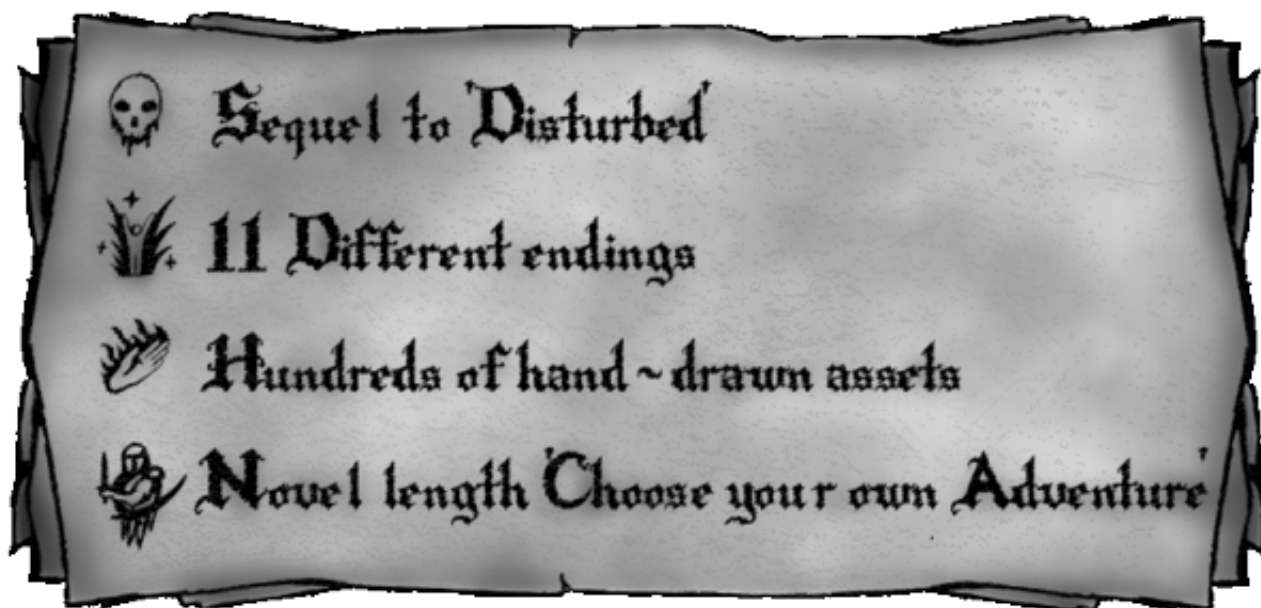 Sequel to 'Disturbed'
11 Different endings
Hundreds of hand~drawn assets
Novel length 'Choose your own Adventure'